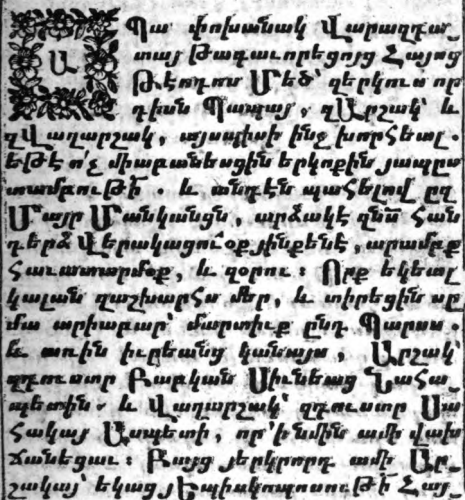 Ա Պա փոխանակ Վարազդա֊
տայ Թագաւորեցոյց Հայոց
Թէոդոս Մեծ՝ զերկուս որ
դիսն Պապայ, զԱրշակ՝ և
զՎաղարշակ, այսպիսի ինչ խորհեալ.
եթէ ո՛չ միաբանեսցին երկոքին յապըս
տամբութի՛. և անդէն պահելով ըզ
Մայր Մանկանցն, արձակէ զնոսա Հան
դերձ Վերակացուօք յինքենէ, արամբք
Հաւատարմօք, և զօրու: Որք եկեալ
կալան զաշխարհս մեր, և տիրեցին սը
մա արիաբար՝ մարտիւք ընդ Պարսս.
և առին իւրեանց կանայս, Արշակ՝
զդուստր Բաբկան Սիւնեաց Նահա֊
պետին. և Վաղարշակ՝ զդուստր Սա
հակայ Ասպետի, որ՝ ինմին ամի վախ
ճանեցաւ: Բայց յերկրորդ ամի Ար֊
շակայ՝ եկաց յԵպիսկոպոսութի՛ Հայ